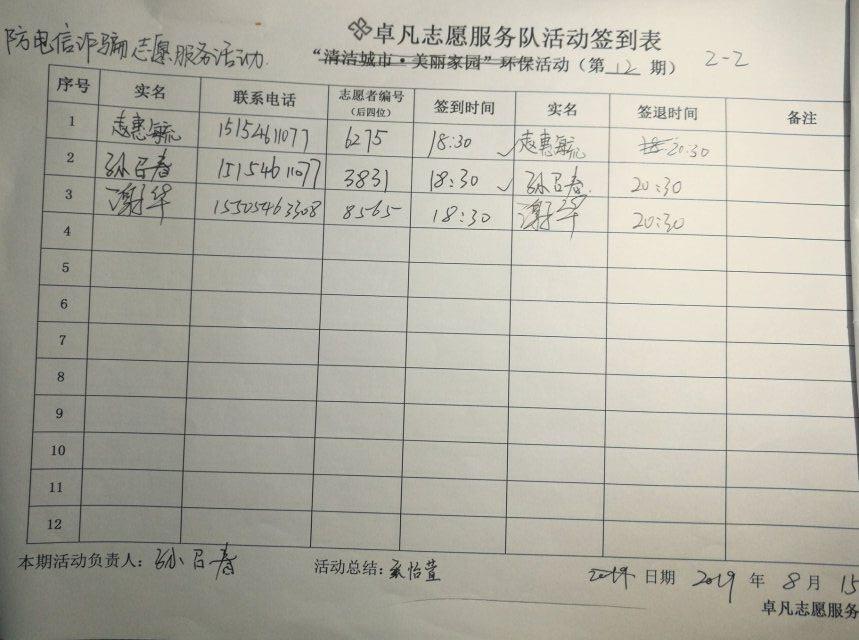 卓凡志愿服务队活动签到表
防电信诈骗志愿服务活动.
“清洁城市·美丽家园”环保活动（第 12 期） 2-2
序号 实名 联系电话 志愿者编号（后四位） 签到时间 实名 签退时间 备注
1 赵惠毓 15154611077 6275 18:30 ✓ 赵惠毓 20:30
2 孙召春 15154611077 3831 18:30 ✓ 孙召春. 20:30
3 谢华 15505463308 8565 18:30 谢华 20:30
4
5
6
7
8
9
10
11
12
本期活动负责人：孙召春 活动总结：怡萱 2019 日期 2019 年 8 月 15
卓凡志愿服务